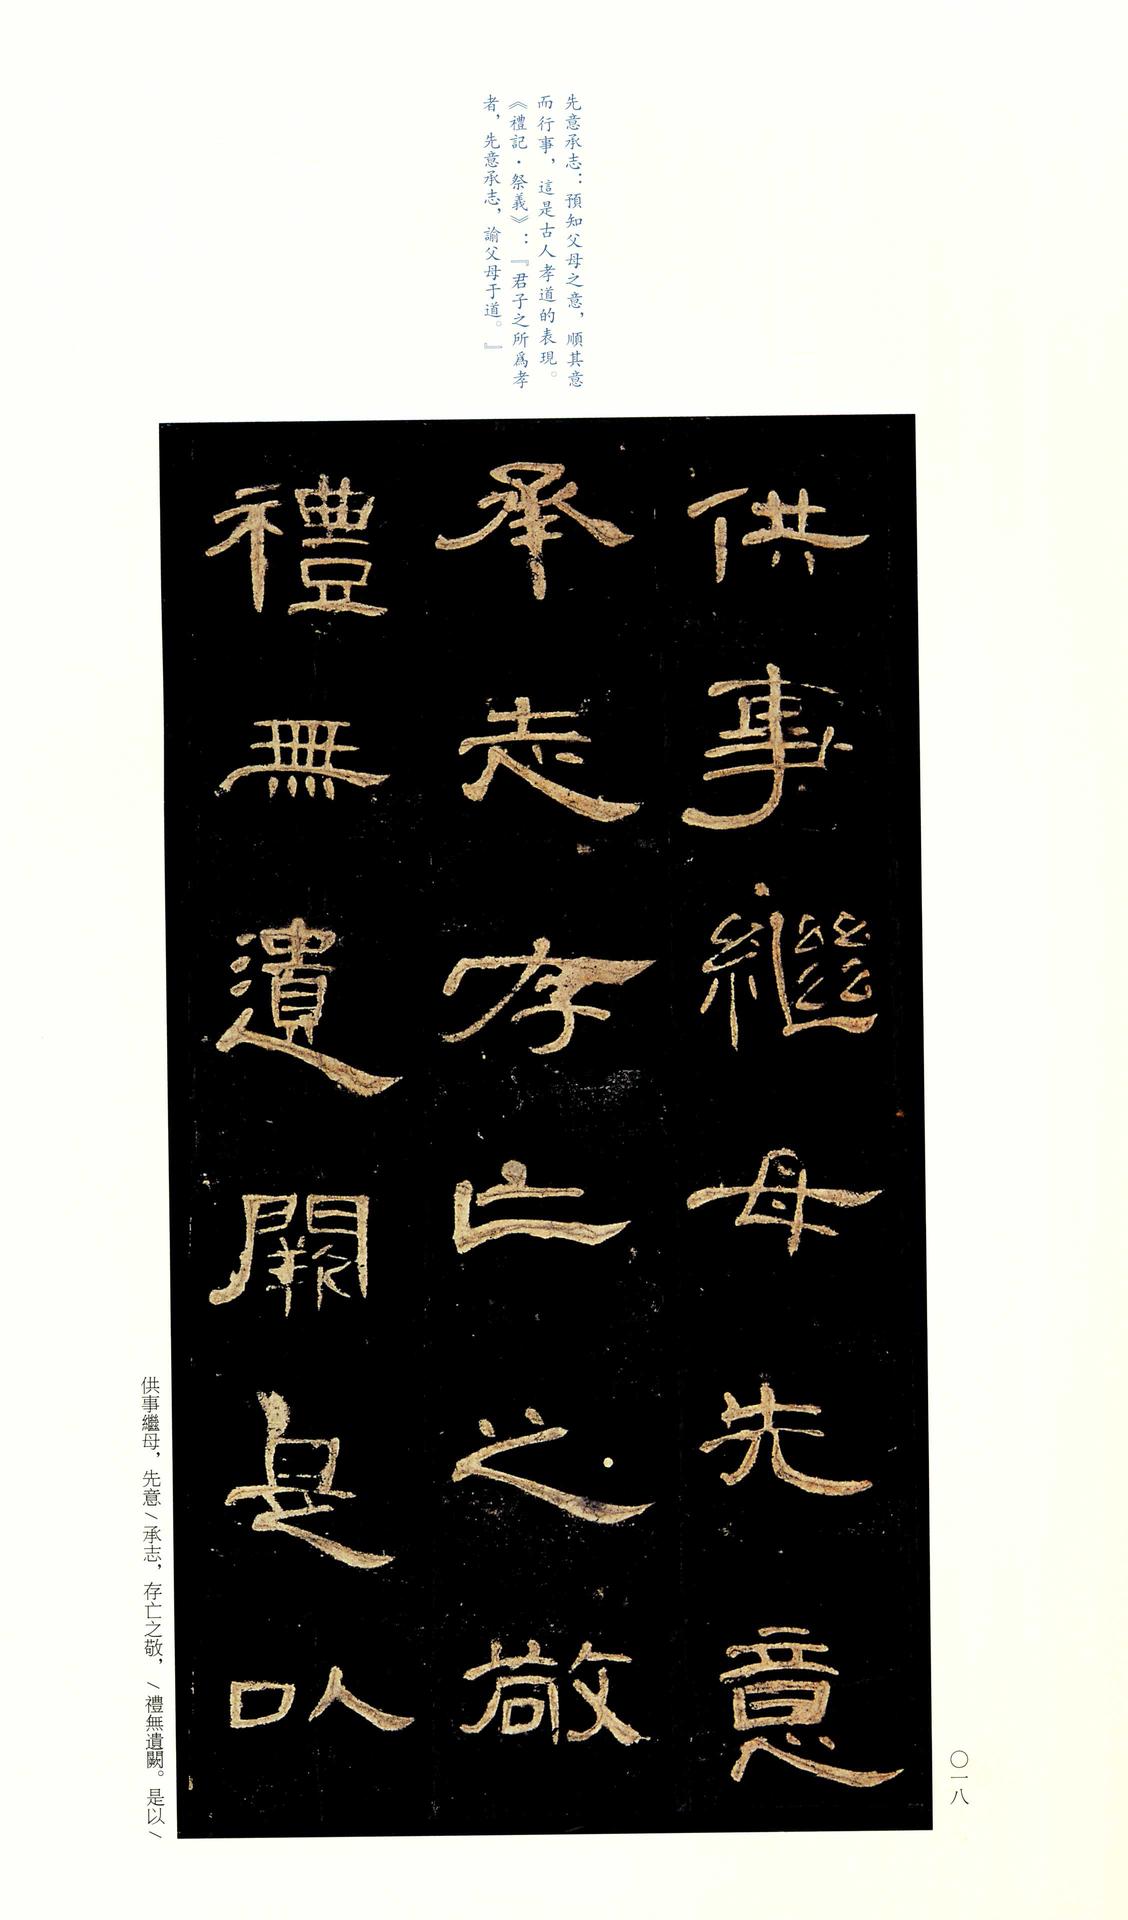 先意承志：預知父母之意，順其意
而行事，這是古人孝道的表現。
《禮記·祭義》：『君子之所爲孝
者，先意承志，諭父母于道。』
供事繼母先意
承志存亡之敬
禮無遺闕是以
供事繼母，先意\承志，存亡之敬，\禮無遺闕。是以\
〇一八